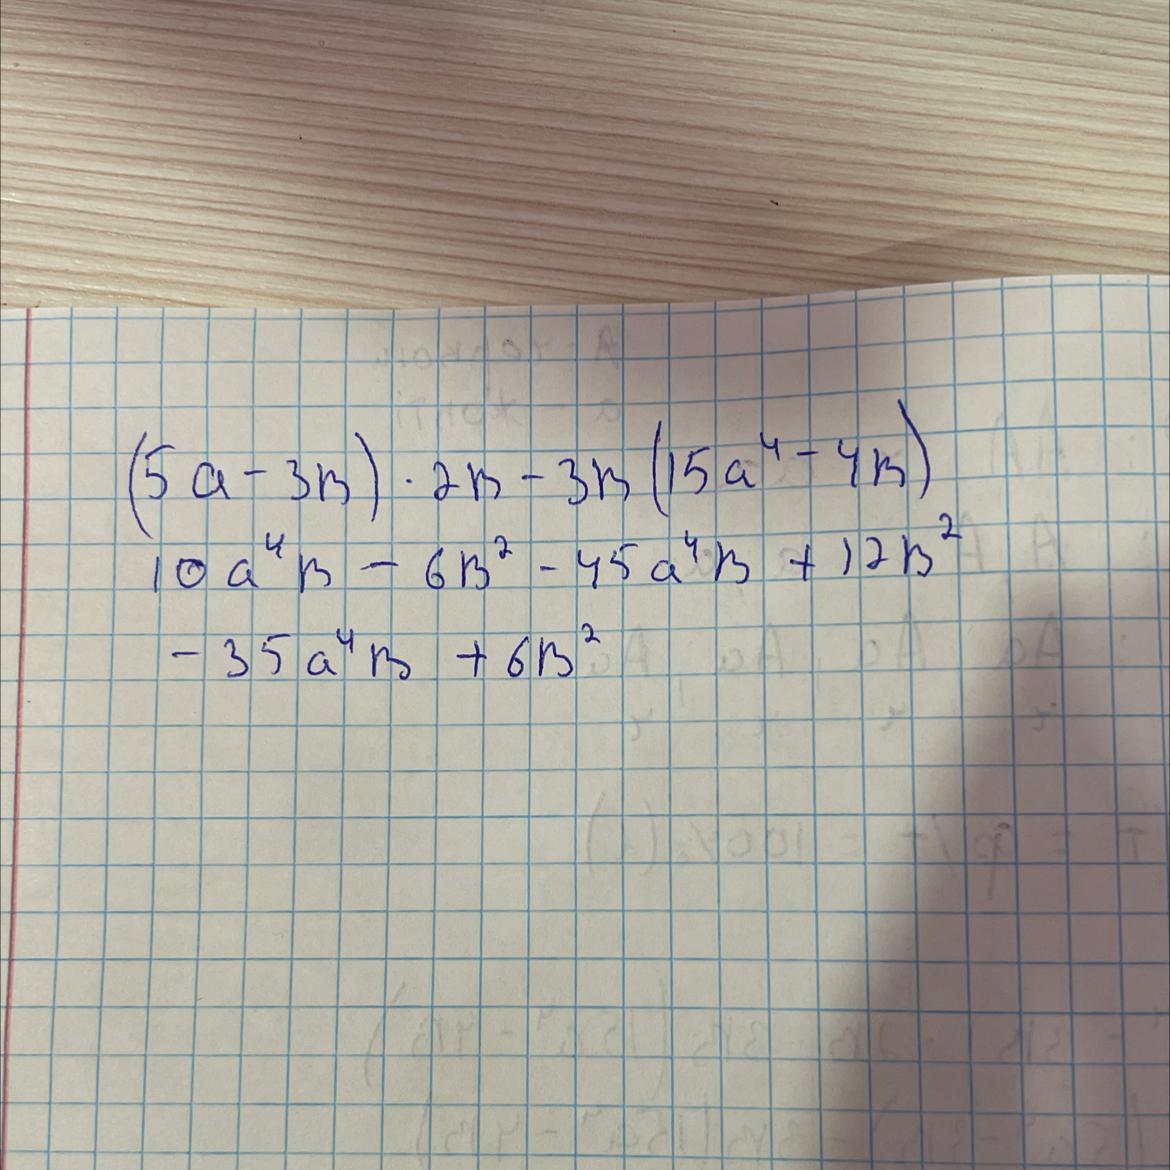 (5a - 3в) · 2в - 3в (15a⁴ - 4в)
10a⁴в - 6в² - 45a⁴в + 12в²
- 35a⁴в + 6в²